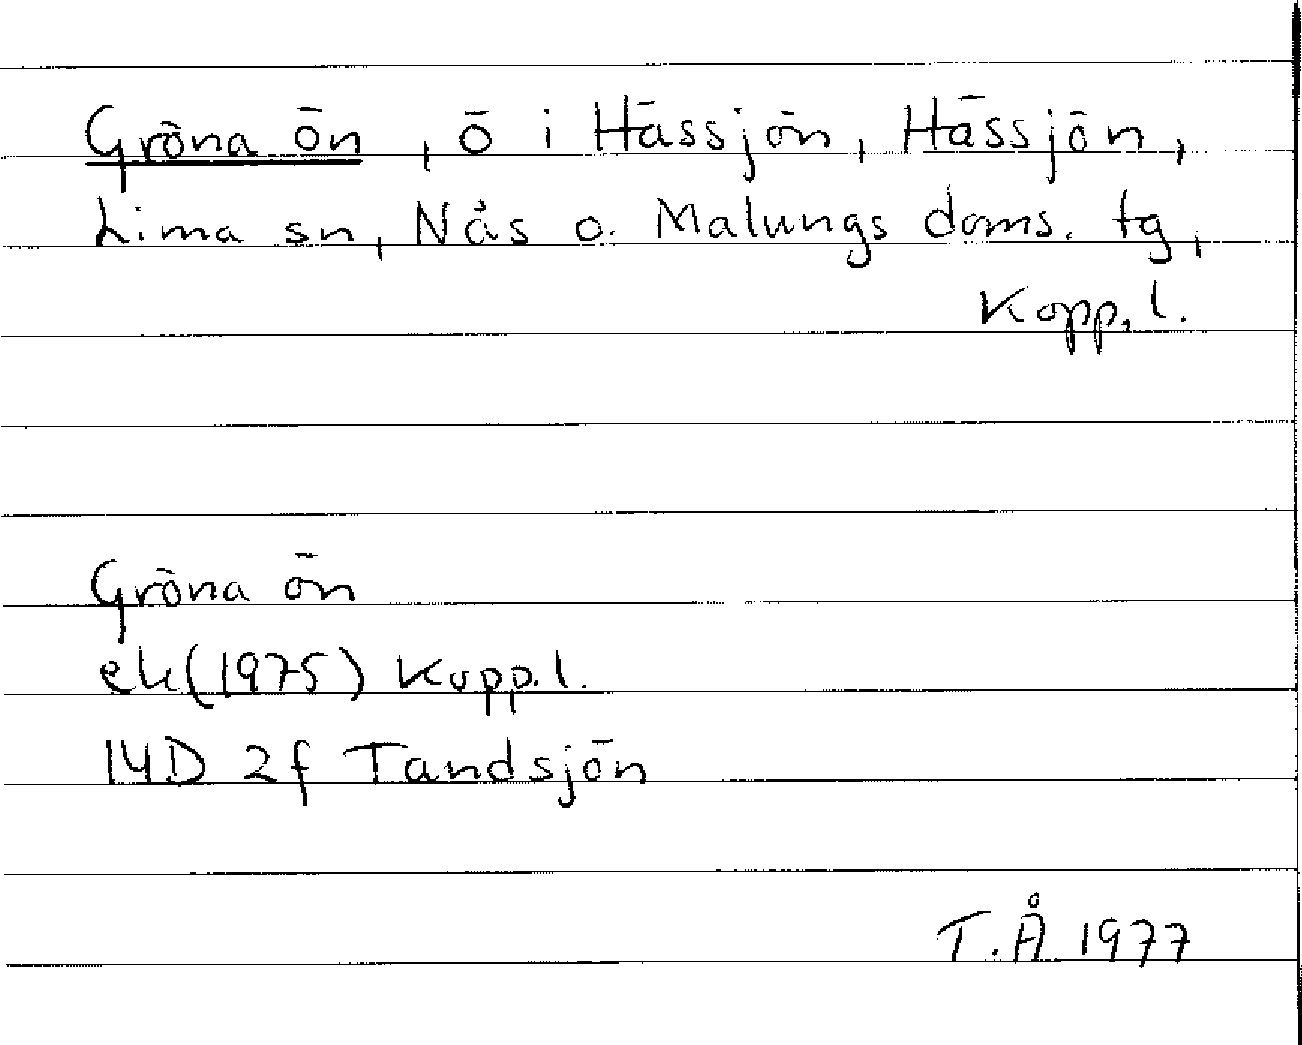 Gröna ön, ö i Hässjön, Hässjön,
Lima sn, Nås o. Malungs doms. tg,
Kopp. l.
Gröna ön
ek (1975) Kopp. l.
14D 2f Tandsjön
T. Å 1977